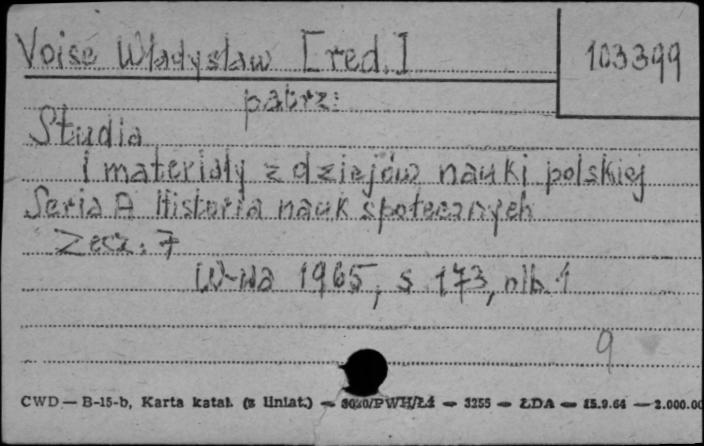 Voisé Władysław [red.] 103399
patrz:
Studia
i materiały z dziejów nauki polskiej
Seria A Historia nauk społecznych
Zesz. 7
W-wa 1965, s 173, nlb. 1
9
CWD — B-15-b, Karta katal. (z liniat.) — 3020/PWH/Łź — 3255 — ŁDA — 15.9.64 — 2.000.00